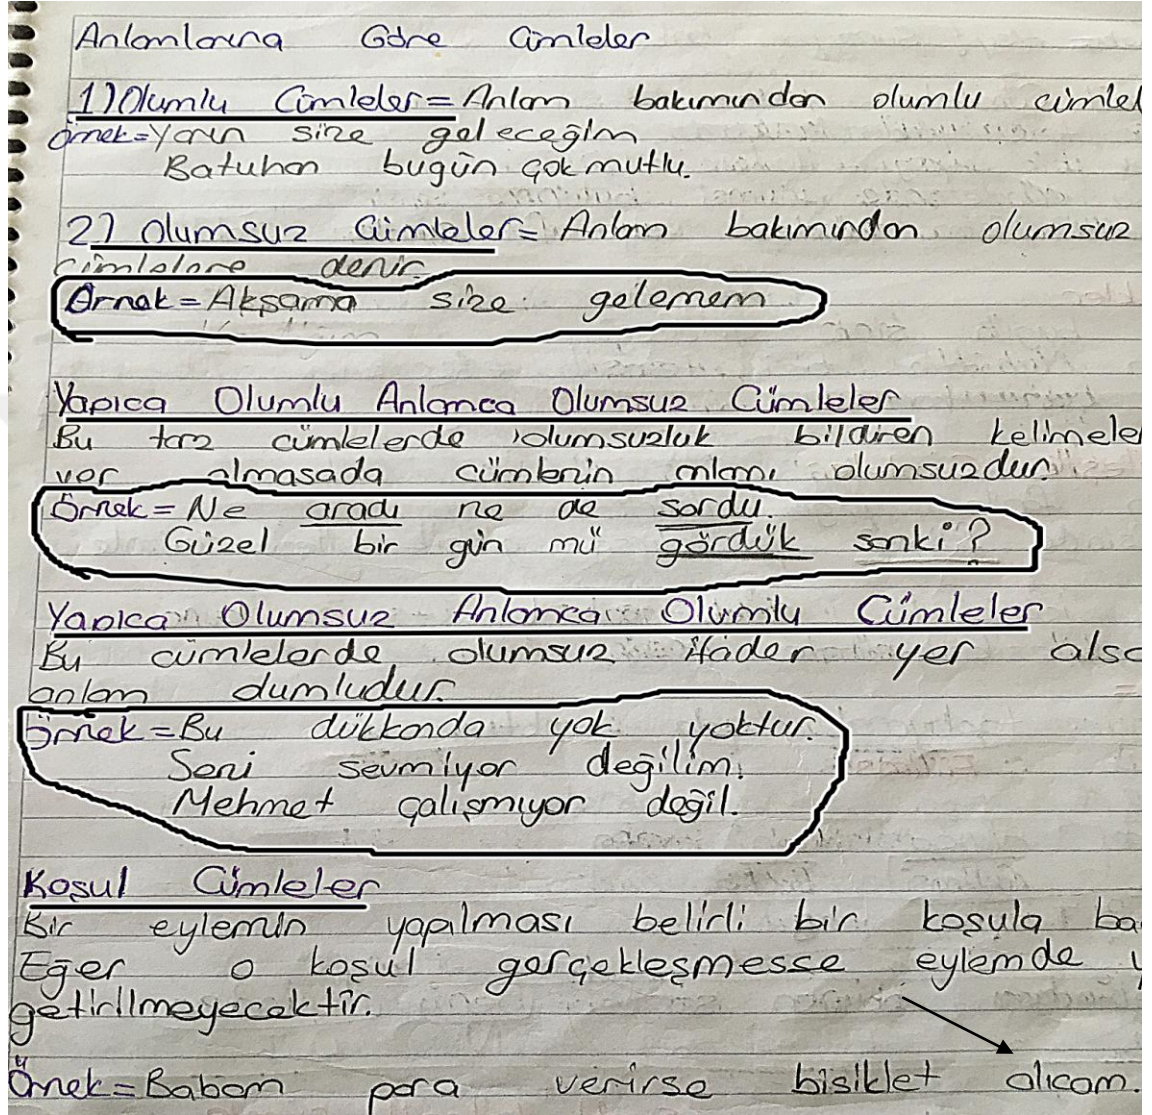 Anlamlarına Göre Cümleler
1) Olumlu Cümleler = Anlam bakımından olumlu cümlel
Örnek = Yarın size geleceğim
Batuhan bugün çok mutlu.
2) Olumsuz Cümleler = Anlam bakımından olumsuz
cümlelere denir.
Örnek = Akşama size gelemem
Yapıca Olumlu Anlamca Olumsuz Cümleler
Bu tarz cümlelerde olumsuzluk bildiren kelimele
yer almasada cümlenin anlamı olumsuzdur.
Örnek = Ne aradı ne de sordu.
Güzel bir gün mü gördük sanki?
Yapıca Olumsuz Anlamca Olumlu Cümleler
Bu cümlelerde olumsuz ifader yer alsa
anlam olumludur.
Örnek = Bu dükkanda yok yoktur.
Seni sevmiyor değilim.
Mehmet çalışmıyor değil.
Koşul Cümleler
Bir eylemin yapılması belirli bir koşula ba
Eğer o koşul gerçekleşmesse eylemde y
getirilmeyecektir.
Örnek = Babam para verirse bisiklet alıcam.